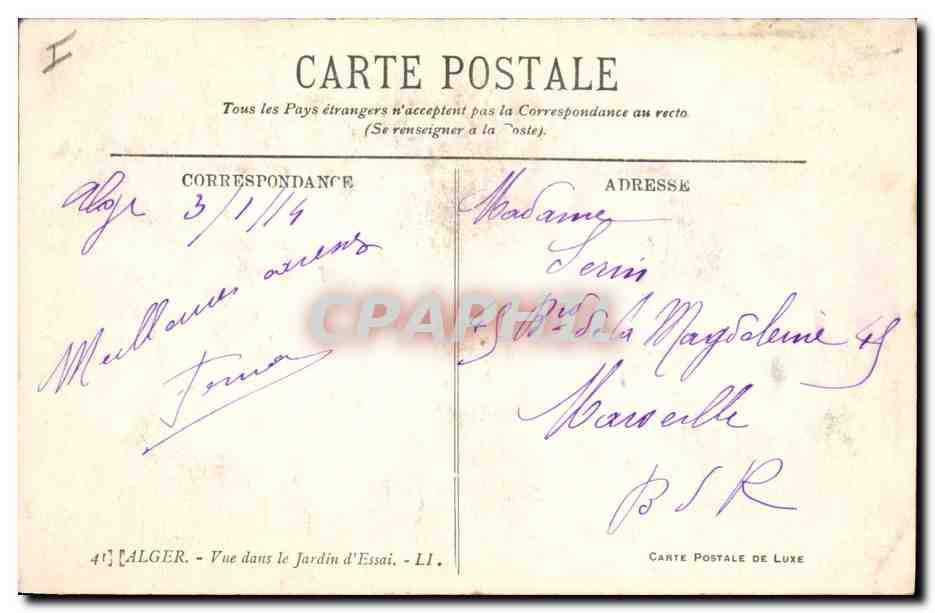 I
CARTE POSTALE
Tous les Pays étrangers n'acceptent pas la Correspondance au recto
(Se renseigner à la Poste).
CORRESPONDANCE
Alger 3/1/14
Meilleures
ADRESSE
Madame
Serin
45 Bd de la Magdeleine 45
Marseille
B d R
CPARHTI
41] [ALGER. - Vue dans le Jardin d'Essai. - LI.
CARTE POSTALE DE LUXE